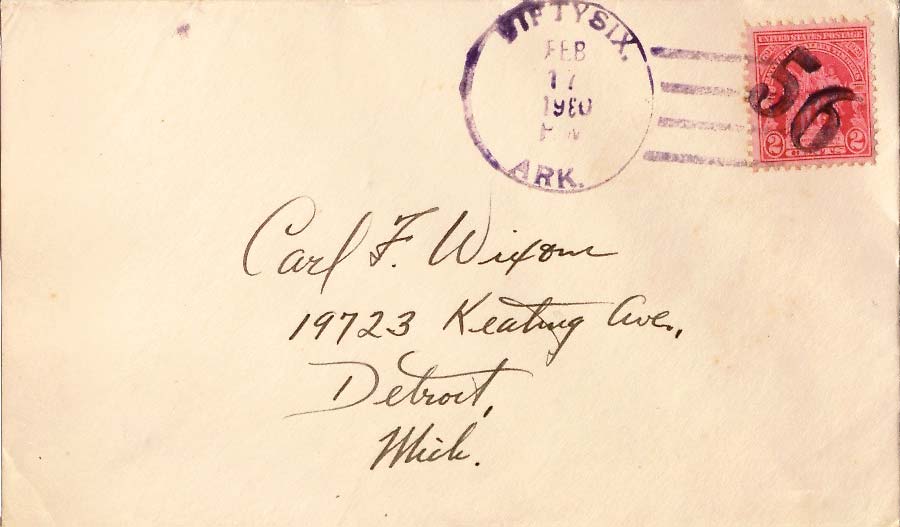 FIFTYSIX.
FEB
17
1930
ARK.
UNITED STATES POSTAGE
56
2 CENTS 2
Carl F. Wixom
19723 Keating Ave.,
Detroit,
Mich.